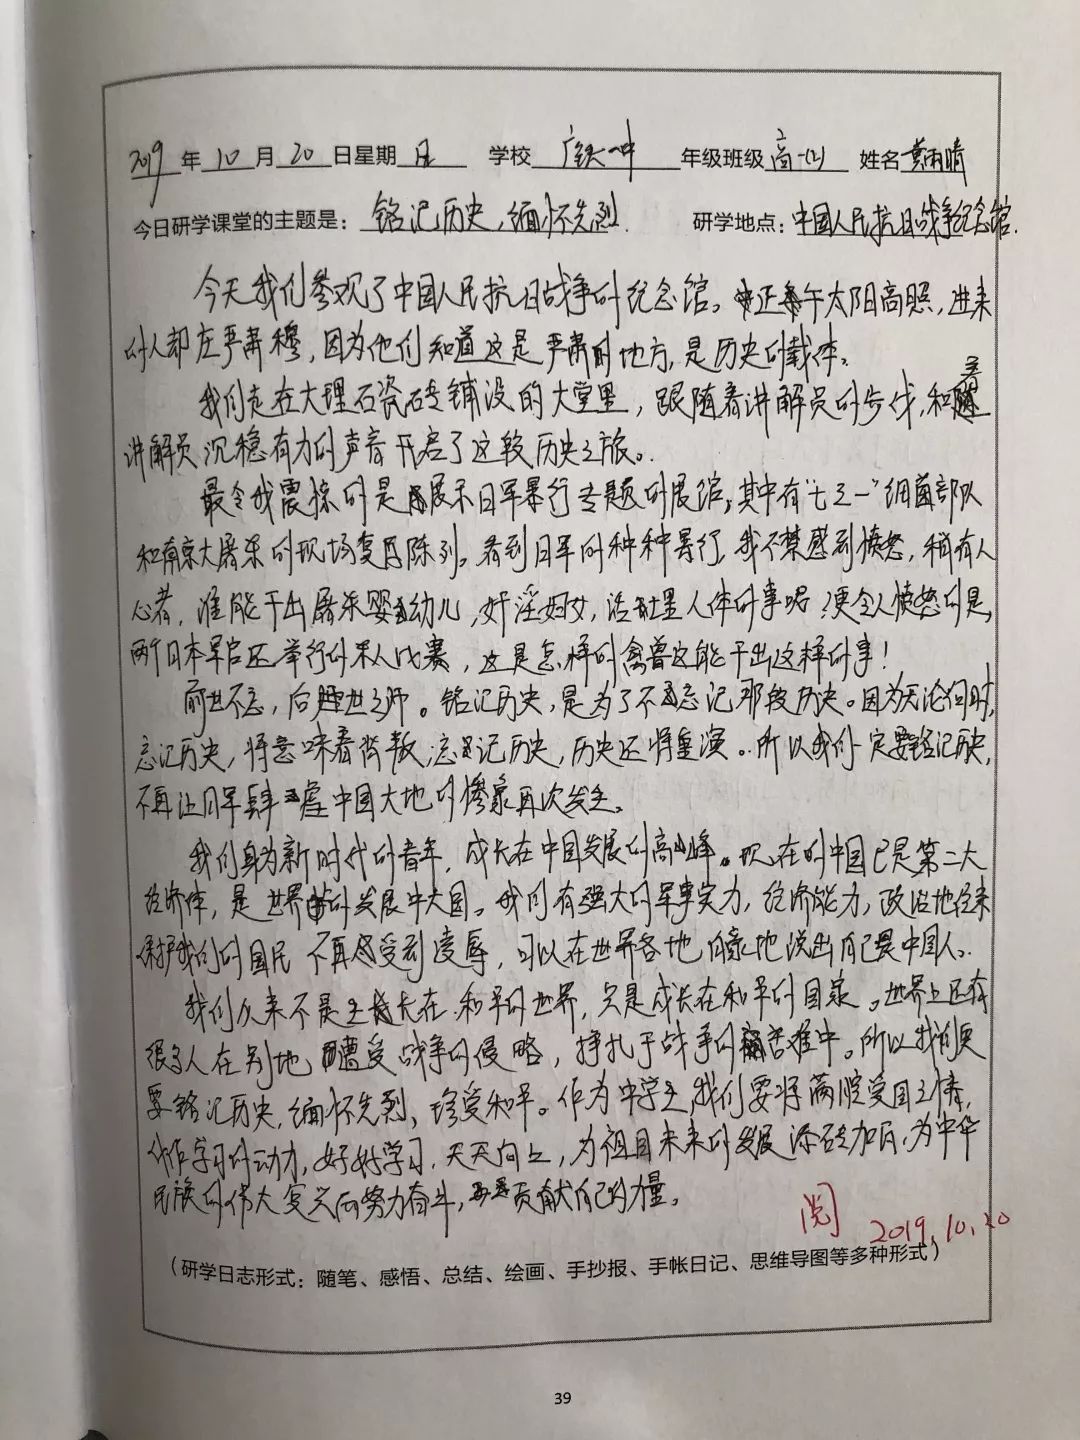 2019年10月20日星期日 学校 广铁一中 年级班级 高一(2) 姓名 黄雨晴
今日研学课堂的主题是：铭记历史，缅怀先烈. 研学地点：中国人民抗日战争纪念馆.
今天我们参观了中国人民抗日战争的纪念馆。正午太阳高照，进来
的人却庄严肃穆，因为他们知道这是严肃的地方，是历史的载体。
我们走在大理石瓷砖铺设的大堂里，跟随着讲解员的步伐，和着
讲解员沉稳有力的声音开启了这段历史之旅。
最令我震惊的是展示日军暴行专题的展馆，其中有“七三一”细菌部队
和南京大屠杀的现场复原陈列。看到日军的种种暴行，我不禁感到愤怒，稍有人
心者，谁能干出屠杀婴幼儿，奸淫妇女，活埋人体的事呢？更令人愤怒的是，
两个日本军官还举行的杀人比赛，这是怎样的禽兽才能干出这样的事！
前世不忘，后世之师。铭记历史，是为了不忘记那段历史。因为无论何时，
忘记历史，将意味着背叛；忘记历史，历史还将重演。所以我们一定要铭记历史，
不再让日军肆虐中国大地的惨象再次发生。
我们身为新时代的青年，成长在中国发展的高峰。现在的中国已是第二大
经济体，是世界的发展中大国。我们有强大的军事实力，经济能力，政治地位来
保护我们的国民不再受到凌辱，可以在世界各地自豪地说出自己是中国人。
我们从来不是生长在和平的世界，只是成长在和平的国家。世界上还有
很多人在别地遭受战争的侵略，挣扎于战争的苦难中。所以我们更
要铭记历史，缅怀先烈，珍爱和平。作为中学生，我们要将满腔爱国之情，
化作学习的动力，好好学习，天天向上，为祖国未来的发展添砖加瓦，为中华
民族的伟大复兴而努力奋斗，贡献自己的力量。
阅
2019.10.20
（研学日志形式：随笔、感悟、总结、绘画、手抄报、手帐日记、思维导图等多种形式）
39